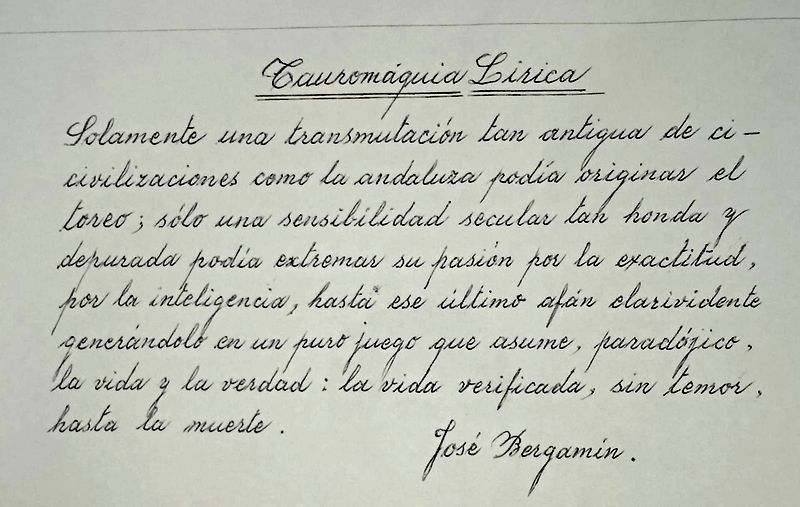 Tauromáquia Lírica
Solamente una transmutación tan antigua de ci-
civilizaciones como la andaluza podía originar el
toreo; sólo una sensibilidad secular tan honda y
depurada podía extremar su pasión por la exactitud,
por la inteligencia, hasta ese último afán clarividente
generándolo en un puro juego que asume, paradójico,
la vida y la verdad: la vida verificada, sin temor,
hasta la muerte.
José Bergamín.